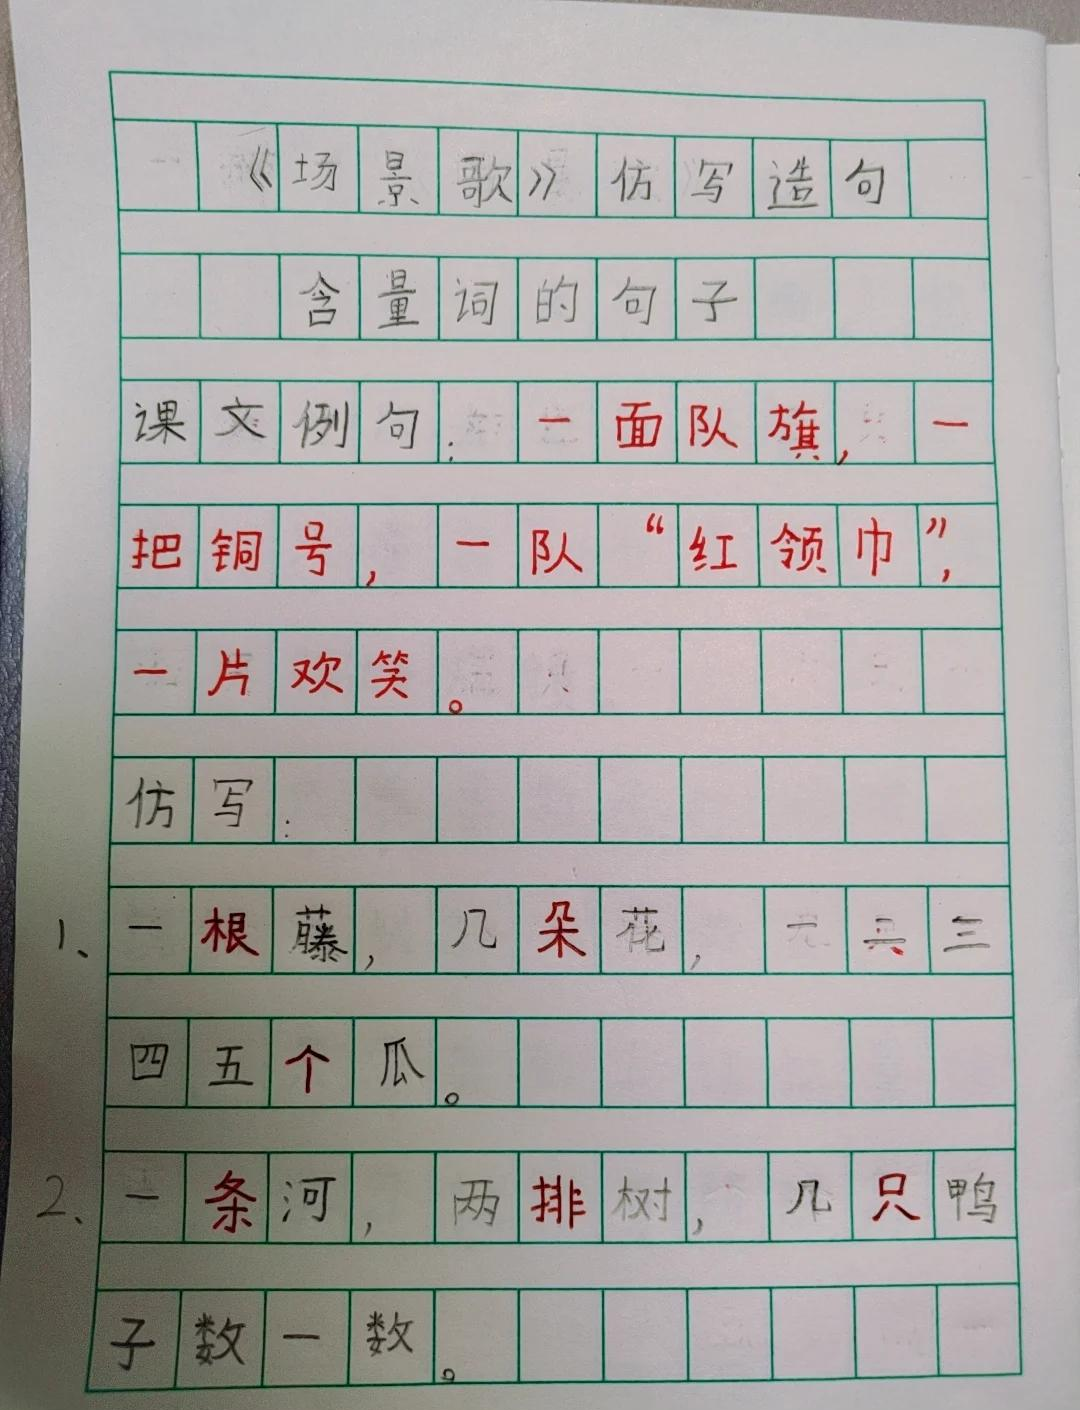 《场景歌》仿写造句
含量词的句子
课文例句：一面队旗，一
把铜号，一队“红领巾”，
一片欢笑。
仿写：
1、一根藤，几朵花，一二三
四五个瓜。
2、一条河，两排树，几只鸭
子数一数。